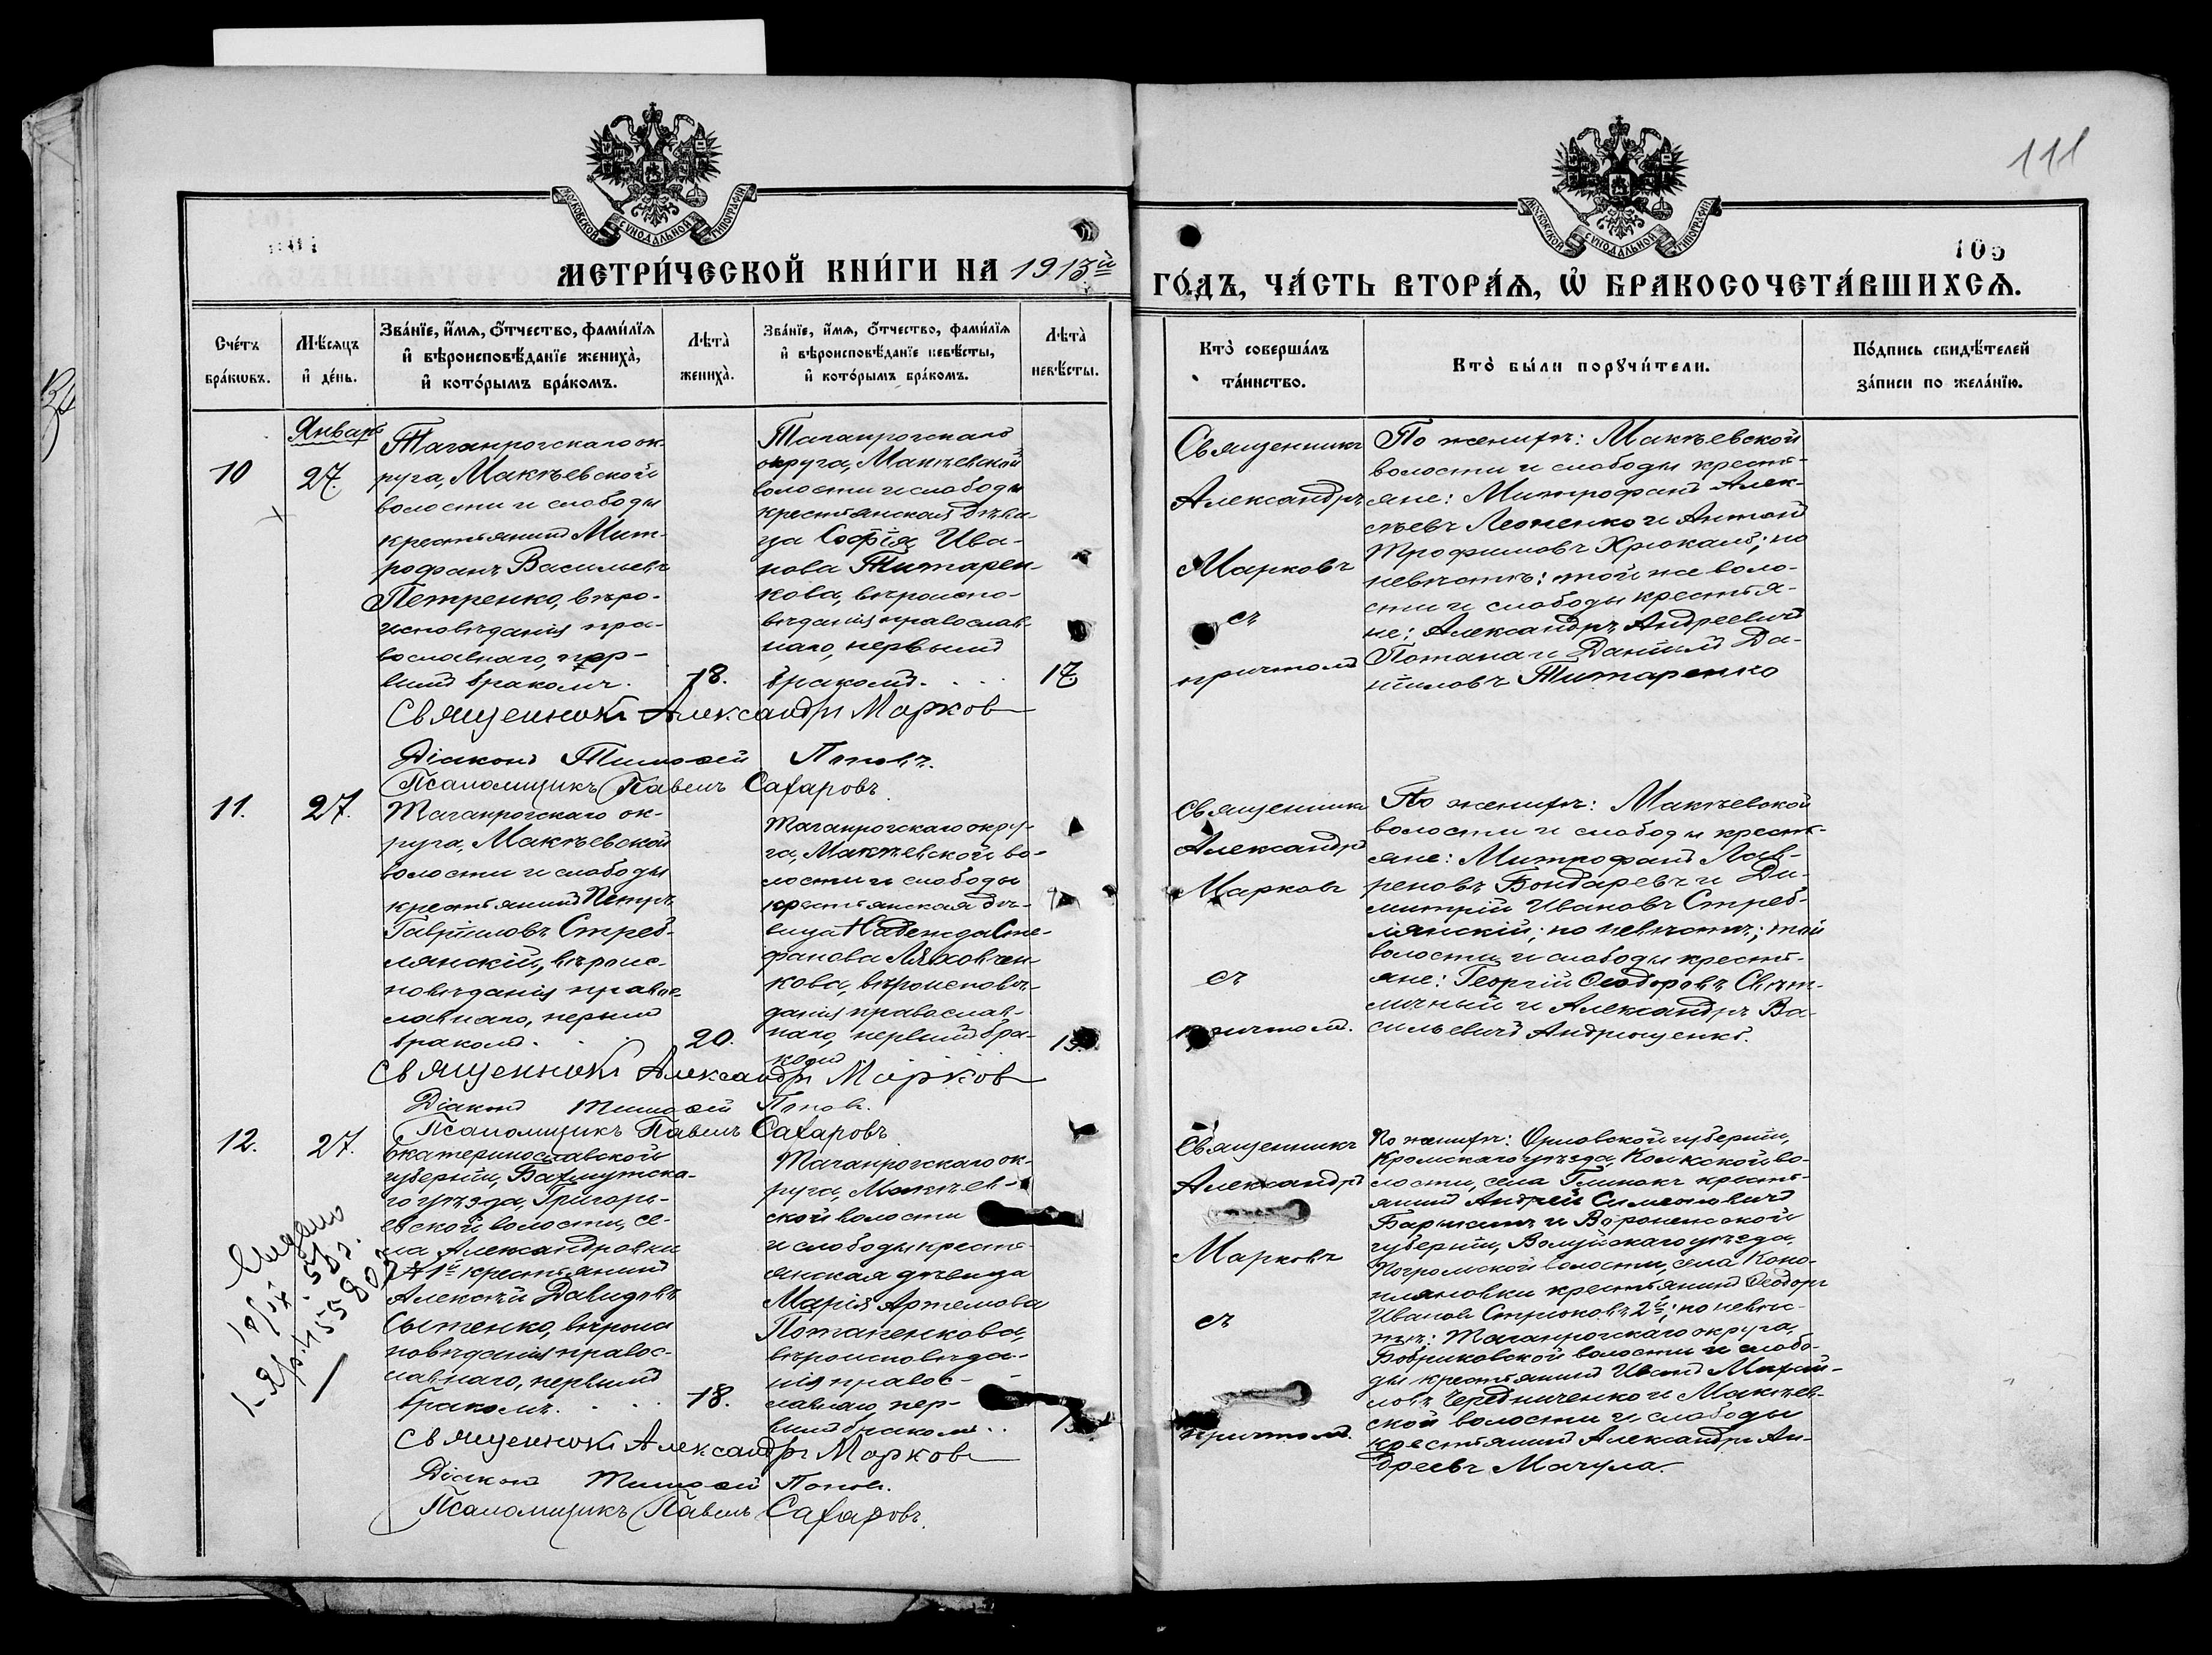 111
105
МОСКОВСКОЙ СѴНОДАЛЬНОЙ ТИПОГРАФІИ
МОСКОВСКОЙ СѴНОДАЛЬНОЙ ТИПОГРАФІИ
МЕТРИ́ЧЕСКОЙ КНИ́ГИ НА 1913й
ГО́ДЪ, ЧА́СТЬ ВТОРА́Ѧ, Ѡ҆ БРАКОСОЧЕТА́ВШИХСѦ.
Сче́тъ бра́кωвъ.
Мѣ́сяцъ и҆ де́нь.
Зва́нїе, и҆́мѧ, ѻ҆́тчество, фами́лїѧ
и҆ вѣроисповѣ́данїе жениха̀,
и҆ кото́рымъ бра́комъ.
Лѣта̀ жениха̀.
Зва́нїе, и҆́мѧ, ѻ҆́тчество, фами́лїѧ
и҆ вѣроисповѣ́данїе невѣ́сты,
и҆ кото́рымъ бра́комъ.
Лѣта̀ невѣ́сты.
Кто̀ соверша́лъ
та́инство.
Кто̀ бы́ли порꙋчи́тели.
По́дпись свидѣ́телей
за́писи по жела́нїю.
Январь
10
27.
Таганрогскаго ок-
руга, Макѣевской
волости и слободы
крестьянинъ Мит-
рофанъ Васильевъ
Петренко, вѣро-
исповѣданія пра-
вославнаго, пер-
вымъ бракомъ.
18.
Таганрогскаго
округа, Макѣевской
волости и слободы
крестьянская дѣви-
ца Софія Ива-
нова Титарен-
кова, вѣроиспо-
вѣданія православ-
наго, первымъ
бракомъ.
17
Священникъ
Александръ
Марковъ
съ
причтомъ
По женихѣ: Макѣевской
волости и слободы кресть-
яне: Митрофанъ Алек-
сѣевъ Леоненко и Антонъ
Трофимовъ Хрюкалъ; по
невѣстѣ: той же воло-
сти и слободы крестья-
не: Александръ Андреевичъ
Потапа и Даніилъ Да-
ніиловъ Титаренко
Священникъ Александръ Марковъ
Діаконъ Тимоѳей Поповъ.
Псаломщикъ Павелъ Сахаровъ.
11.
27.
Таганрогскаго ок-
руга, Макѣевской
волости и слободы
крестьянинъ Петръ
Гавріиловъ Стреб-
лянскій, вѣроис-
повѣданія правос-
лавнаго, первымъ
бракомъ.
20.
Таганрогскаго окру-
га, Макѣевской во-
лости и слободы
крестьянская дѣ-
вица Надежда Сте-
фанова Ляховчен-
кова, вѣроисповѣ-
данія православ-
наго, первымъ бра-
комъ
Священникъ
Александръ
Марковъ
съ
причтомъ.
По женихѣ: Макѣевской
волости и слободы кресть-
яне: Митрофанъ Лав-
реновъ Бондаревъ и Ди-
митрій Ивановъ Стреб-
лянскій; по невѣстѣ; той
волости и слободы кресть-
яне: Георгій Ѳеодоровъ Свѣт-
личный и Александръ Ва-
сильевичъ Андрющенко.
Священникъ Александръ Марковъ
Діаконъ Тимоѳей Поповъ.
Псаломщикъ Павелъ Сахаровъ
12.
27.
Екатеринославской
губерніи, Бахмутска-
го уѣзда, Григорь-
евской волости, се-
ла Александровки
крестьянинъ
Алексѣй Давидовъ
Сытенко, вѣроис
повѣданія правос-
лавнаго, первымъ
бракомъ.
18.
Таганрогскаго ок-
руга, Макѣев-
ской волости
и слободы кресть-
янская дѣвица
Марія Артемова
Потапенкова,
вѣроисповѣда-
нія правос-
лавнаго, пер-
вымъ бракомъ.
Священникъ
Александръ
Марковъ
съ
причтомъ.
По женихѣ: Орловской губерніи,
Кромскаго уѣзда, волости, села Глинокъ кресть-
янинъ Андрей Симеоновичъ
Барыкинъ и Воронежской
губерніи, Валуйскаго уѣзда,
Погромской волости, села Коно-
пляновки крестьянинъ Ѳеодоръ
Ивановъ Стрюковъ 2й; по невѣс-
тѣ: Таганрогскаго округа,
Бобриковской волости и слобо-
ды крестьянинъ Иванъ
Чередниченко и Макѣев-
ской волости и слободы
крестьянинъ Александръ Ан-
дреевъ Мачула.
Священникъ Александръ Марковъ
Діаконъ Тимоѳей Поповъ.
Псаломщикъ Павелъ Сахаровъ.